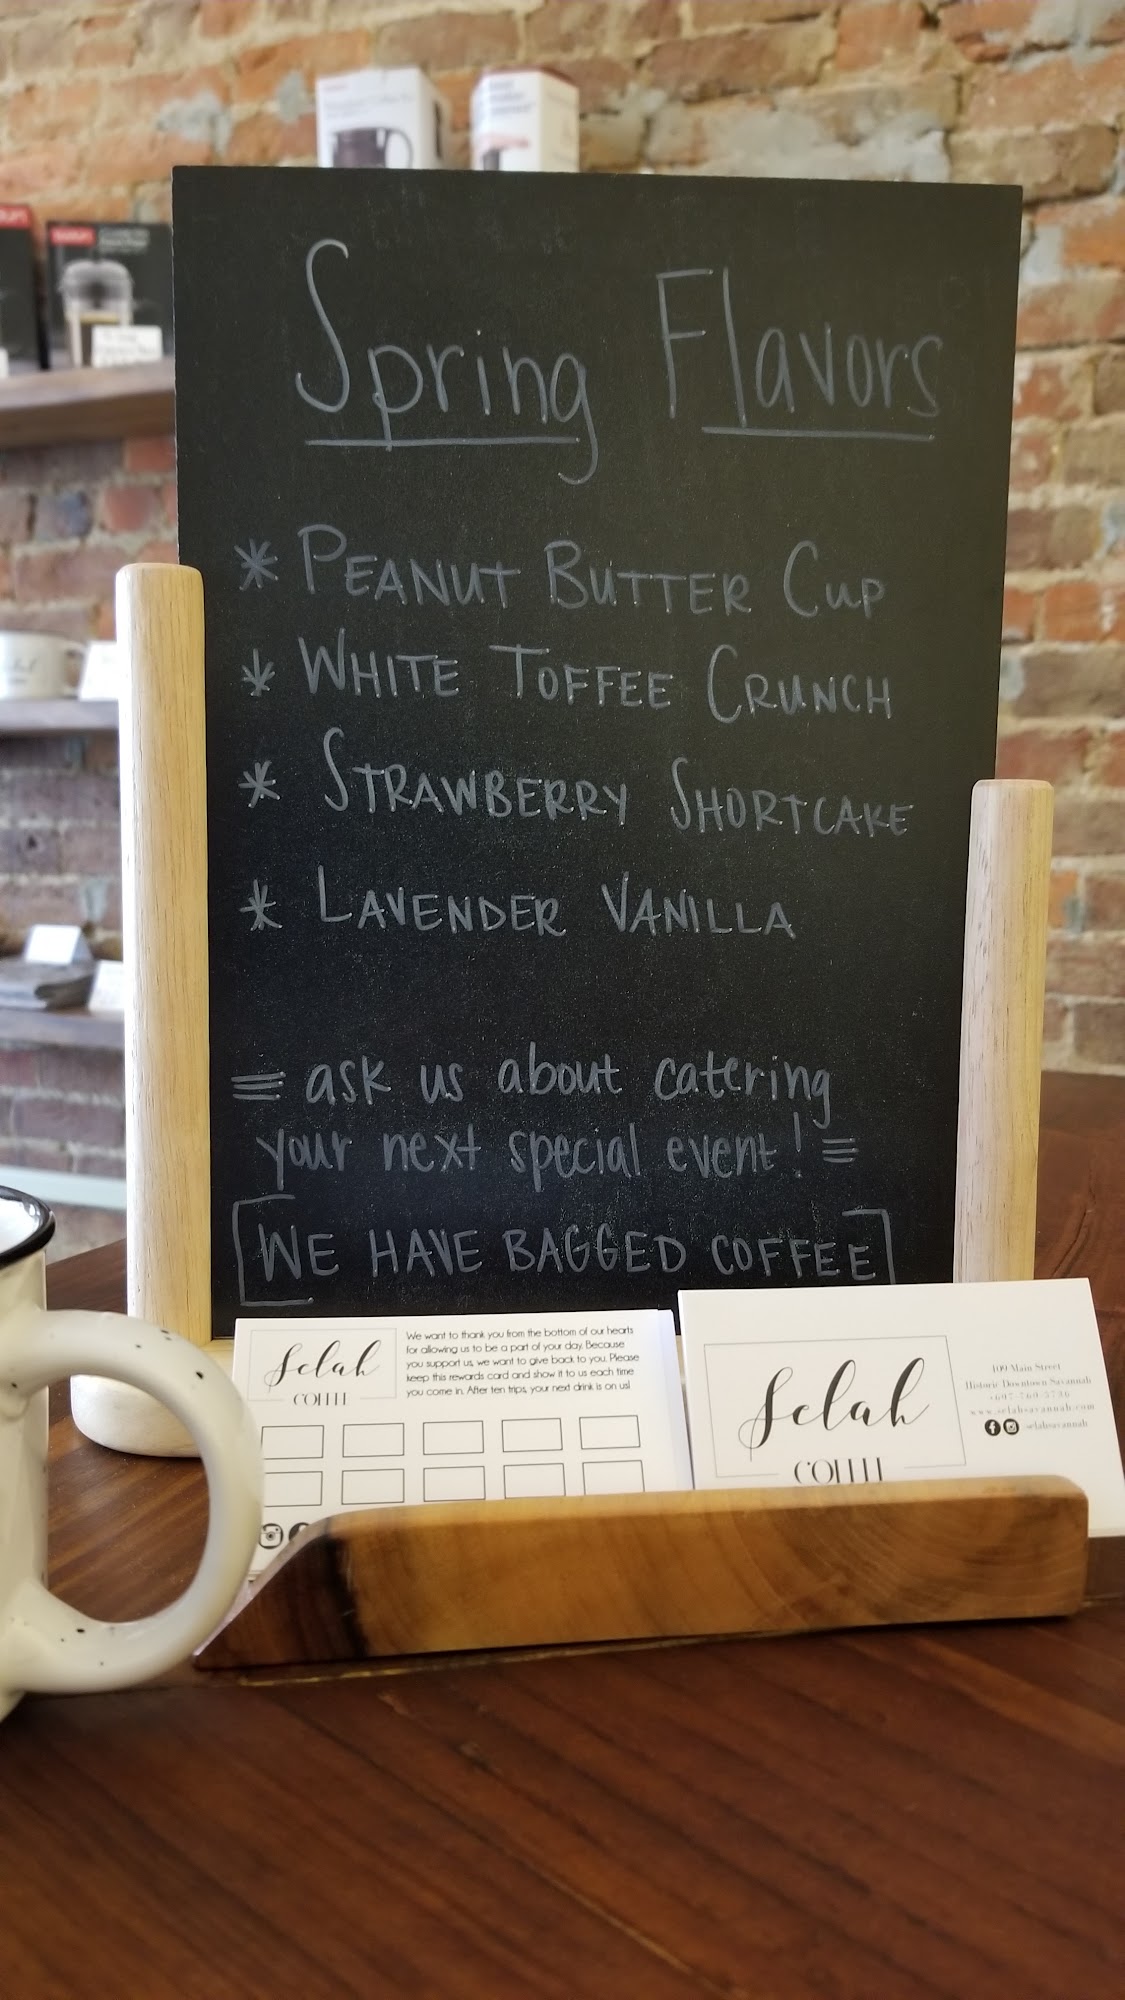 Spring Flavors
* PEANUT BUTTER CUP
* WHITE TOFFEE CRUNCH
* STRAWBERRY SHORTCAKE
* LAVENDER VANILLA
= ask us about catering
your next special event! =
[WE HAVE BAGGED COFFEE]
Selah
COFFEE
We want to thank you from the bottom of our hearts
for allowing us to be a part of your day. Because
you support us, we want to give back to you. Please
keep this rewards card and show it to us each time
you come in. After ten trips, your next drink is on us!
Selah
COFFEE
109 Main Street
Historic Downtown Savannah
www.selahsavannah.com
selahsavannah